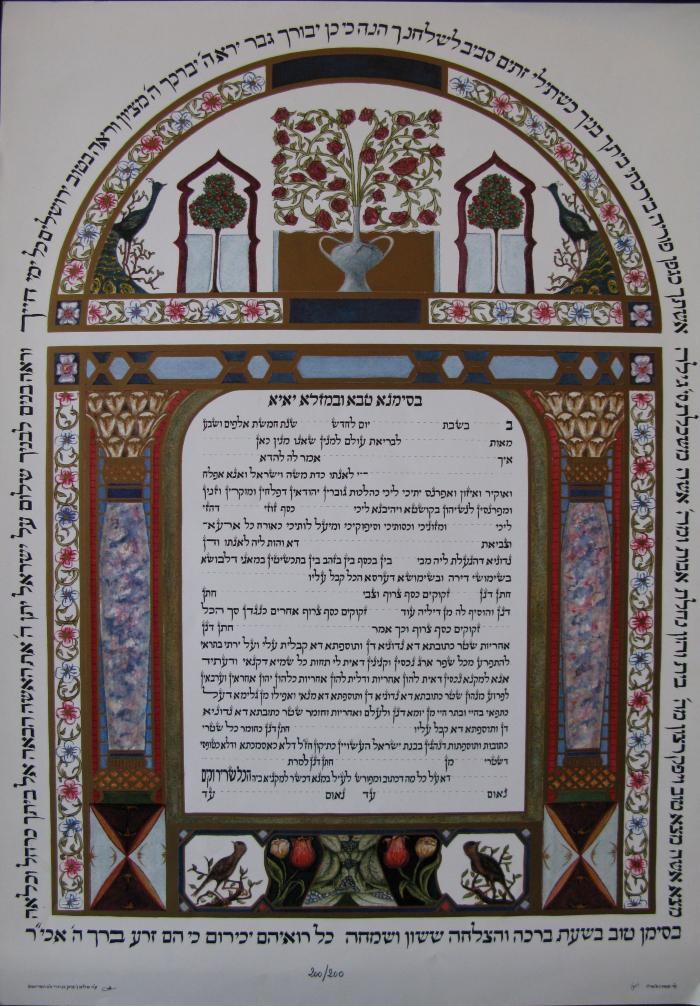 אשתך כגפן פוריה בירכתי ביתך בניך כשתילי זתים סביב לשלחנך הנה כי כן יבורך גבר ירא ה' יברכך ה' מציון וראה בטוב ירושלים כל ימי חייך
וראה בנים לבניך שלום על ישראל יתן ה' את האשה הבאה אל ביתך כרחל וכלאה
בסימנא טבא ובמזלא יאיא
ב בשבת יום לחדש שנת חמשת אלפים ושבע
מאות לבריאת עולם למנין שאנו מנין כאן
איך אמר לה להדא
לאנתו כדת משה וישראל ואנא אפלח
ואוקיר ואיזון ואפרנס יתיכי ליכי כהלכות גוברין יהודאין דפלחין ומוקרין וזנין
ומפרנסין לנשיהון בקושטא ויהיבנא ליכי כסף זוזי דחזי
ליכי ומזוניכי וכסותיכי וסיפוקיכי ומיעל לותיכי כאורח כל ארעא
וצביאת דא והות ליה לאנתו ודין
נדוניא דהנעלת ליה מבי בין בכסף בין בזהב בין בתכשיטין במאני דלבושא
בשימושי דירה ובשימושא דערסא הכל קבל עליו
חתן דנן זקוקים כסף צרוף וצבי חתן
דנן והוסיף לה מן דיליה עוד זקוקים כסף צרוף אחרים כנגדן סך הכל
זקוקים כסף צרוף וכך אמר חתן דנן
אחריות שטר כתובתא דא נדוניא דן ותוספתא דא קבלית עלי ועל ירתי בתראי
להתפרע מכל שפר ארג נכסין וקנינין דאית לי תחות כל שמיא דקנאי ודעתיד
אנא למקנא נכסין דאית להון אחריות ודלית להון אחריות כלהון יהון אחראין וערבאין
לפרוע מנהון שטר כתובתא דא נדוניא דן ותוספתא דא מנאי ואפילו מן גלימא דעל
כתפאי בחיי ובתר חיי מן יומא דנן ולעלם ואחריות וחומר שטר כתובתא דא נדוניא
דן ותוספתא דא קבל עליו חתן דנן כחומר כל שטרי
כתובות ותוספתות דנהגין בבנת ישראל העשויין כתיקון חז"ל דלא כאסמכתא ודלא כטופסי
דשטרי מן חתן דנן למרת
דא על כל מה דכתוב ומפורש לעיל במנא דכשר למקניא ביה הכל שריר וקים
נאום עד נאום עד
בסימן טוב בשעת ברכה והצלחה ששון ושמחה כל רואיהם יכירום כי הם זרע ברך ה' אכי"ר
200/200